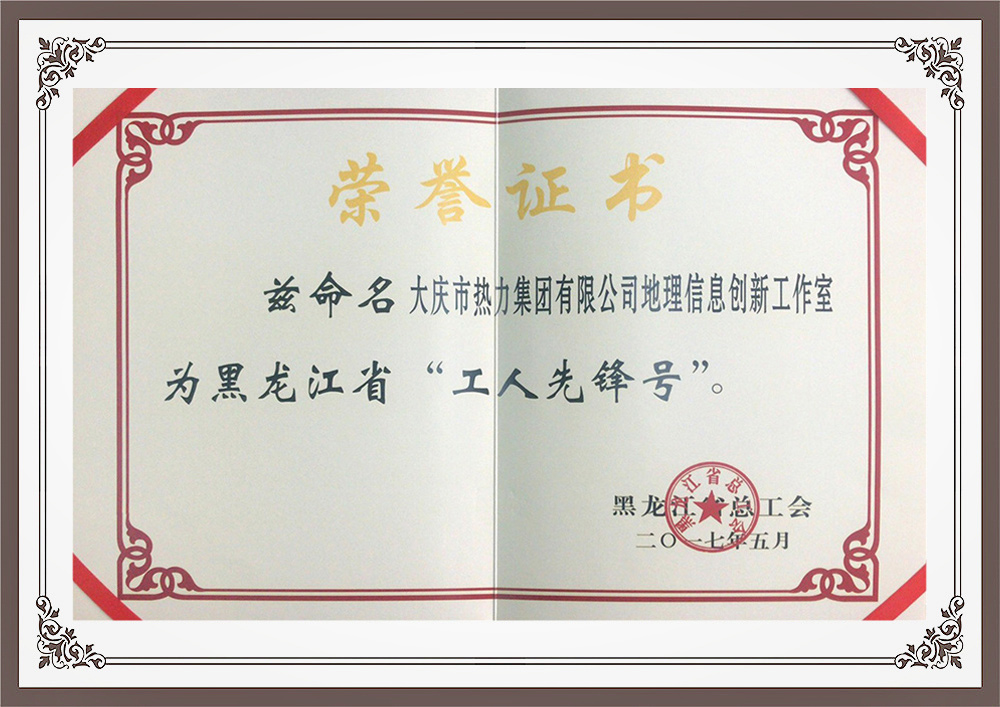 荣誉证书
兹命名大庆市热力集团有限公司地理信息创新工作室
为黑龙江省“工人先锋号”。
黑龙江省总工会
二〇一七年五月
黑龙江省总工会